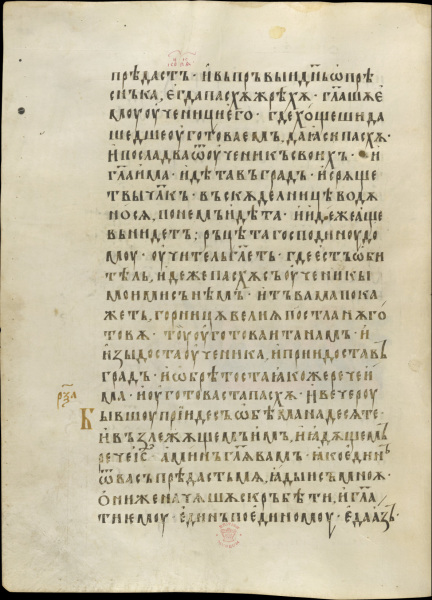 прѣдастъ · и҆въпръвыи д҃нь ѡ҆прѣ
снъка, е҆гдапасхѫжрѣхѫ · гл҃ашѫе
моуоу҆ченициего · гдехощешида
шедшеоу҆готоваемъ, даꙗсипасхѫ ·
И҆посладваѿоу҆ченикъсвоихъ · и
гл҃аи҆ма · и҆дѣтавъградъ · и҆срѧще
твычл҃къ · въскѫделницеводѫ
носѧ, понемъи҆дѣта · и҆и҆дежеаще
вънидетъ ; рьцѣтагосподиноудо
моу · оу҆чительгл҃еть · гдеестъѡ҆би
тѣль, и҆дежепасхѫсъоу҆ченикы
моимисънѣмъ · и҆тъвамапока
жеть, горницѫвелиѧпостланѫго
товѫ · тоуоу҆готоваитанамъ · и҆
и҆зыдостаоу҆ченика, и҆приидоставъ
градъ · и҆ѡ҆брѣтостаꙗкожеречеи
ма · и҆оу҆готовастапасхѫ · И҆вечероу
рѯ҃а
Бывшоуприидесъѡ҆бѣманадесѧте ·
и҆възлежѧщемъи҆мъ, и҆ꙗдѫщемъ
речеі҃с · аминъгл҃ѧвамъ · ꙗкоединъ
ѿвасъпрѣдастьмѧ, ꙗдыисъмноѫ ·
Ѻ҆ниженачѧшѫскръбѣти, и҆гл҃а
тиемоу · е҆динъпоединомоу · е҆даазъ ·